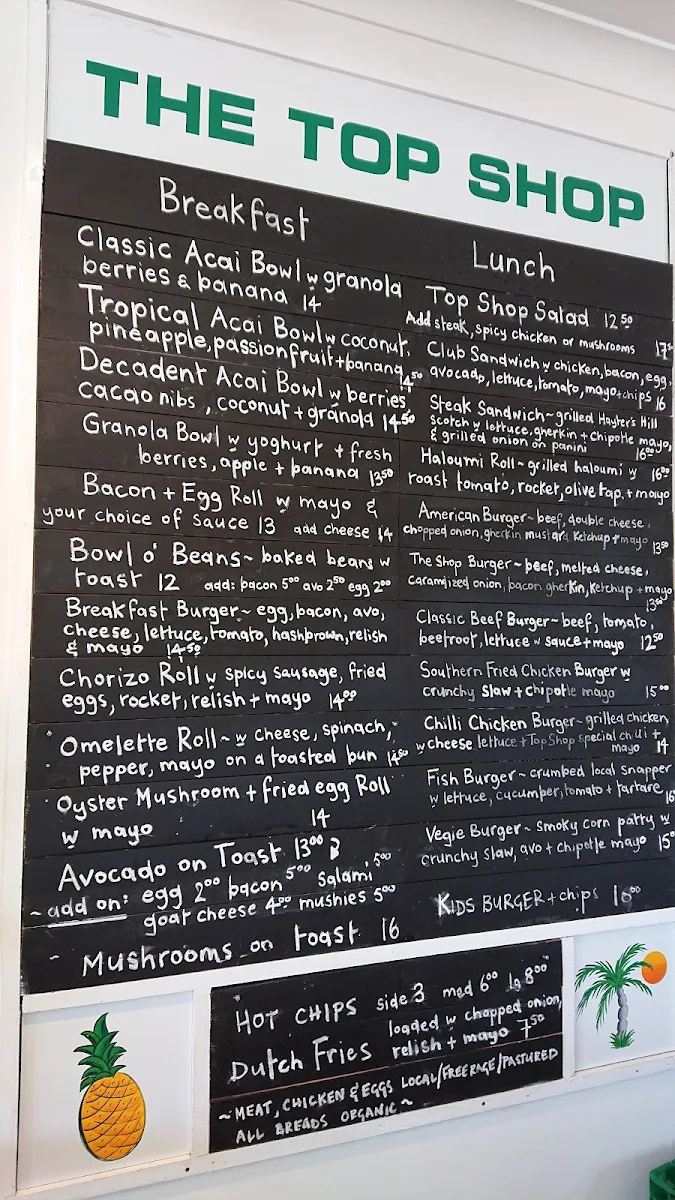 THE TOP SHOP
Breakfast
Classic Acai Bowl w granola
berries & banana 14
Tropical Acai Bowl w coconut,
pineapple, passionfruit + banana 14.50
Decadent Acai Bowl w berries
cacao nibs, coconut + granola 14.50
Granola Bowl w yoghurt + fresh
berries, apple + banana 13.50
Bacon + Egg Roll w mayo &
your choice of sauce 13 add cheese 14
Bowl o' Beans ~ baked beans w
toast 12 add: bacon 5.00 avo 2.50 egg 2.00
Breakfast Burger ~ egg, bacon, avo,
cheese, lettuce, tomato, hashbrown, relish
& mayo 14.50
Chorizo Roll w spicy sausage, fried
eggs, rocket, relish + mayo 14.00
Omelette Roll ~ w cheese, spinach,
pepper, mayo on a toasted bun 14.50
Oyster Mushroom + fried egg Roll
w mayo 14
Avocado on Toast 13.00
~ add on: egg 2.00 bacon 5.00 Salami 5.00
goat cheese 4.50 mushies 5.00
~ Mushrooms on toast 16
Lunch
Top Shop Salad 12.50
Add steak, spicy chicken or mushrooms
Club Sandwich w chicken, bacon, egg,
avocado, lettuce, tomato, mayo + chips 16
Steak Sandwich ~ grilled Hayter's Hill
scotch w lettuce, gherkin + chipotle mayo,
& grilled onion on panini 16.00
Haloumi Roll ~ grilled haloumi w 16.00
roast tomato, rocket, olive tap. + mayo
American Burger ~ beef, double cheese,
chopped onion, gherkin mustard ketchup + mayo 13.50
The Shop Burger ~ beef, melted cheese,
caramlized onion, bacon gherkin, ketchup + mayo
13.50
Classic Beef Burger ~ beef, tomato,
beetroot, lettuce w sauce + mayo 12.50
Southern Fried Chicken Burger w
crunchy slaw + chipotle mayo 15.00
Chilli Chicken Burger ~ grilled chicken,
w cheese lettuce + Top Shop special chilli +
mayo 14
Fish Burger ~ crumbed local snapper
w lettuce, cucumber, tomato + tartare 16
Vegie Burger ~ smoky corn patty w
crunchy slaw, avo + chipotle mayo 15.00
KIDS BURGER + chips 10.00
HOT CHIPS side 3 med 6.00 lg 8.00
Dutch Fries loaded w chopped onion,
relish + mayo 7.50
~ MEAT, CHICKEN & EGGS LOCAL/FREERAGE/PASTURED
ALL BREADS ORGANIC ~